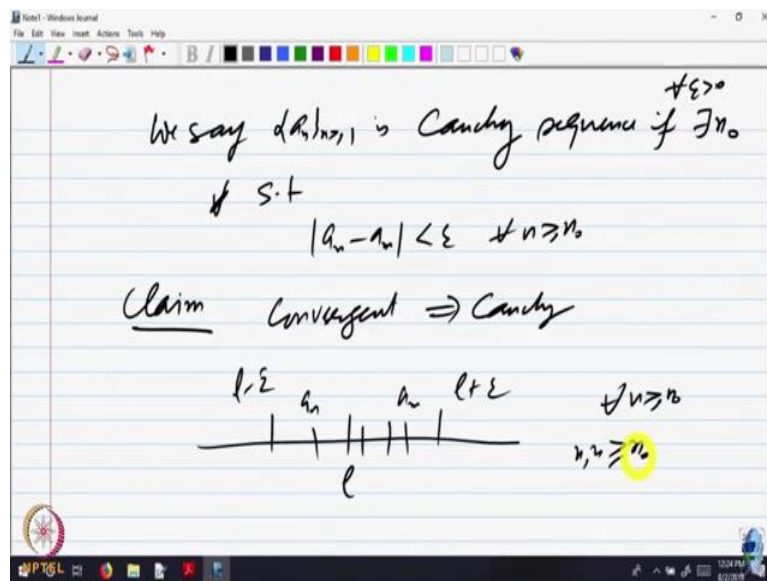 Note1 - Windows Journal
File Edit View Insert Actions Tools Help
B I
∀ε>0
We say {aₙ}ₙ≥₁ is Cauchy sequence if ∃n₀
s.t
|aₙ - aₘ| < ε ∀ n ≥ n₀
Claim Convergent ⇒ Cauchy
l-ε aₙ aₘ l+ε ∀n≥n₀
l n,m ≥ n₀
NPTEL
12:24 PM
8/2/2019